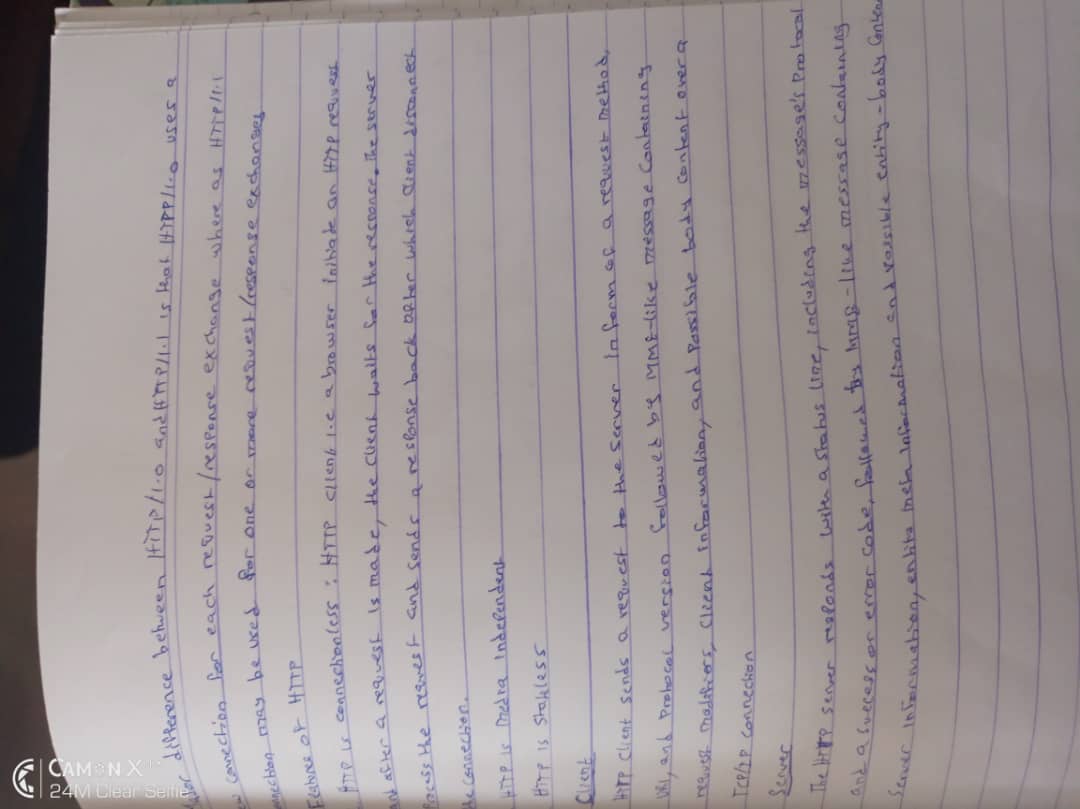 CAMON X
24M Clear Selfie
difference between HTTP/1.0 and HTTP/1.1 is that HTPP/1.0 uses a
connection for each request/response exchange where as HTTP/1.1
connection may be used for one or more request/response exchanges
Features of HTTP
HTTP is connectionless : HTTP client i.e a browser initiate an HTTP request
and after a request is made, the client waits for the response. The server
Process the request and sends a response back after which client disconnect
the connection.
HTTP is media independent
HTTP is Stateless
Client
HTTP client sends a request to the server in form of a request method,
URI, and Protocol version followed by MIME-like message containing
request modifiers, client information, and possible body content over a
TCP/IP connection
Server
The HTTP server responds with a status line, including the message's protocol
and a success or error code, followed by MIME-like message containing
Server information, entity meta information and possible entity-body